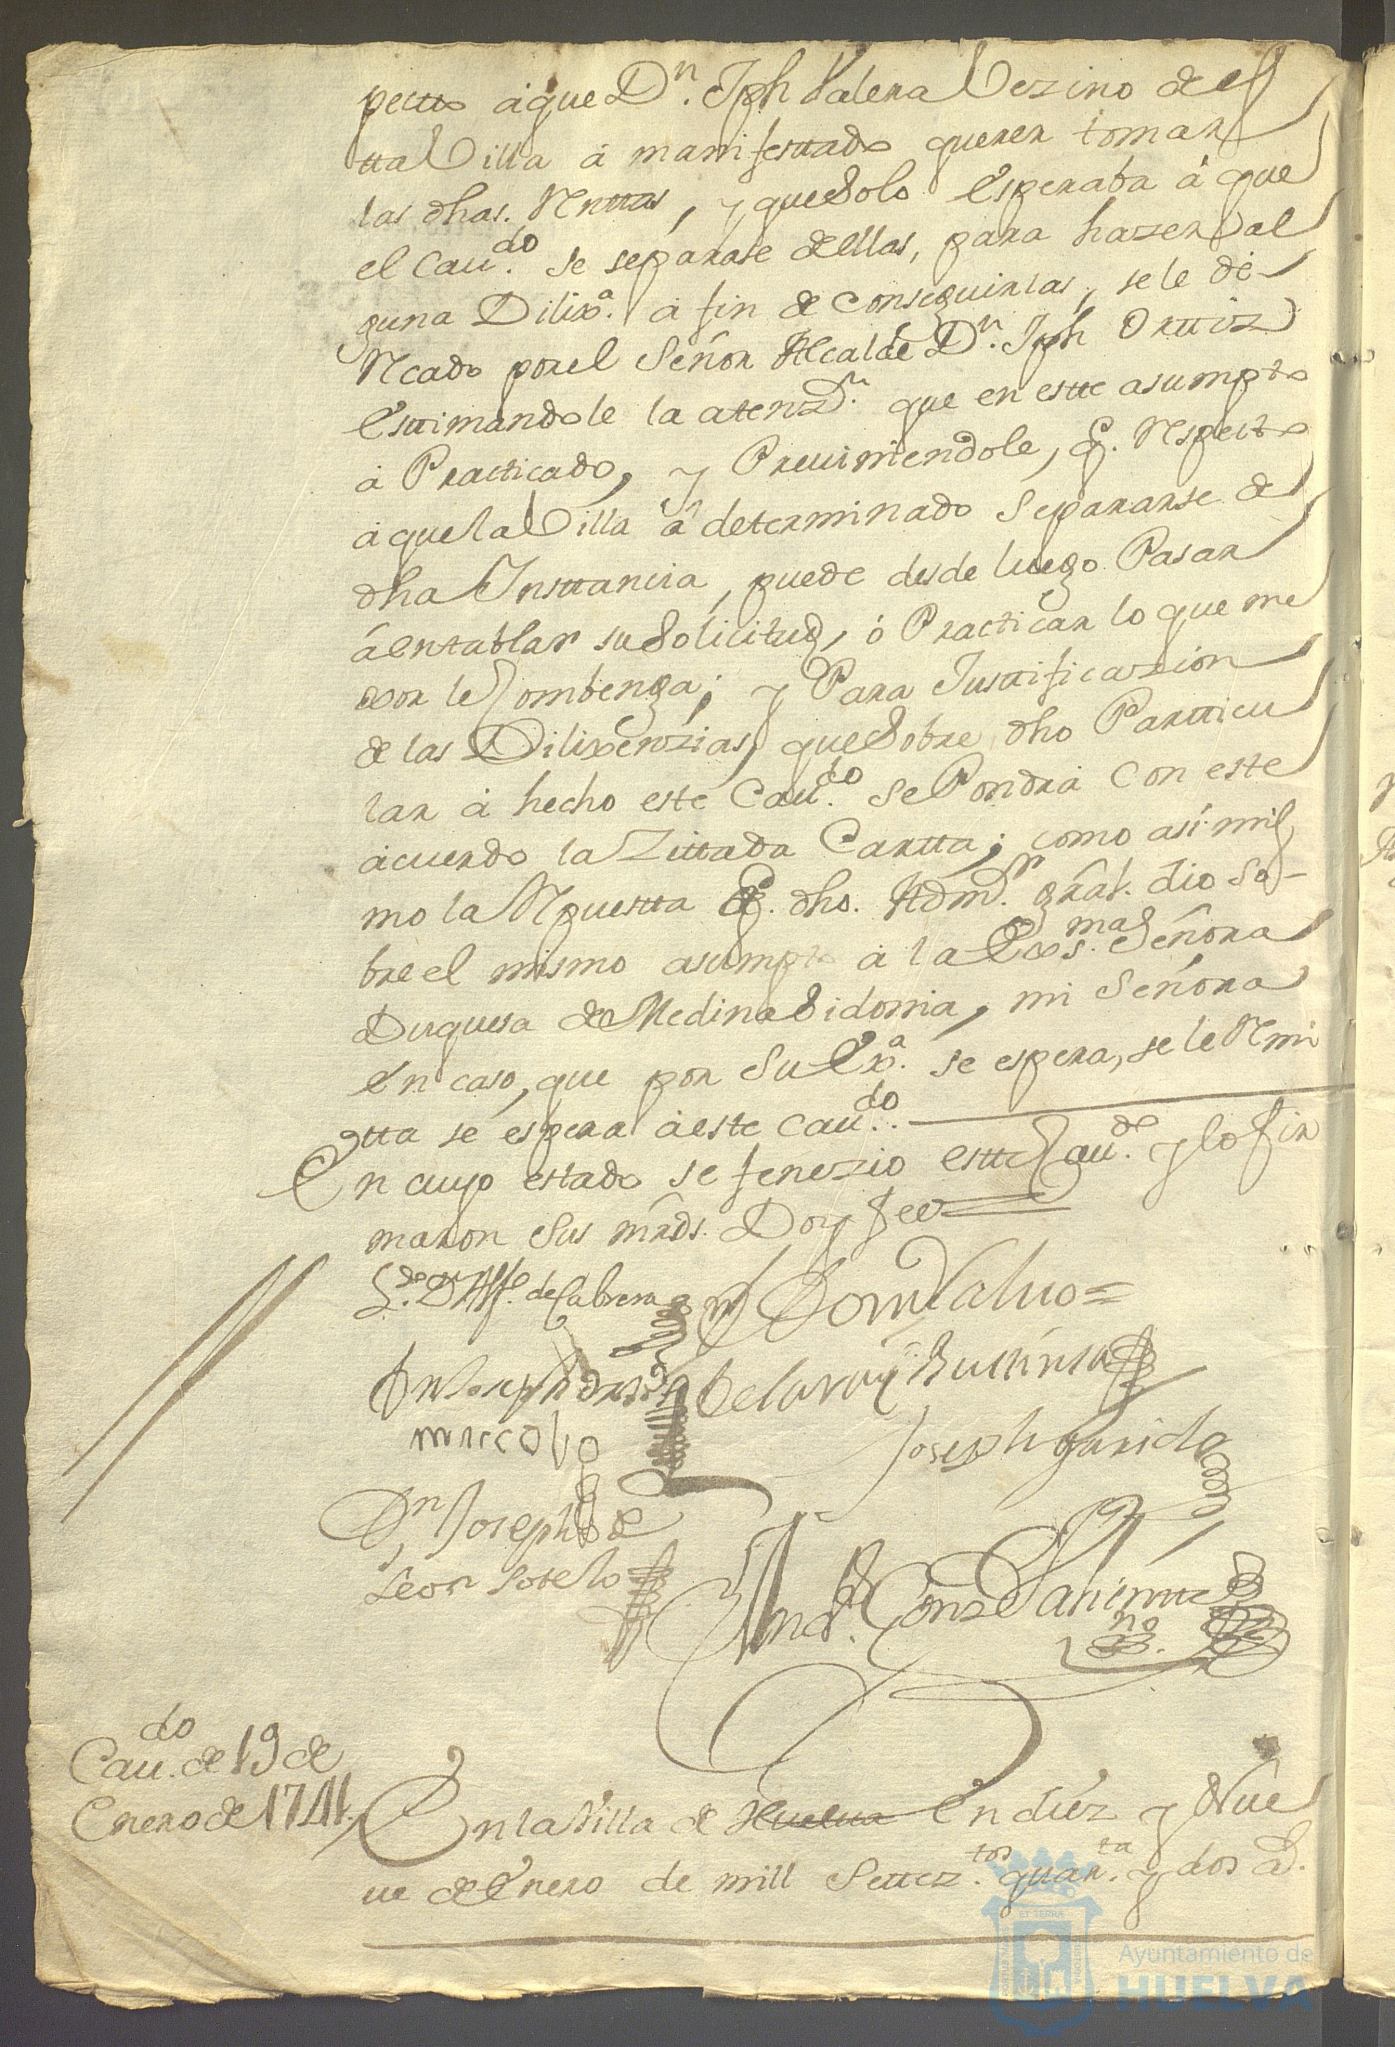 pectto áque Dn. Jph Valera Vezino de es
tta Villa á manifesttado querer tomar
las dhas. Rnttas, y que Solo esperaba á que
el Cavdo. se separase dellas, para hazer al
guna Dilixa. á fin de Conseguirlas, se le dé
Rcado por el Señor Alcalde Dn. Jph Orttiz
esttimandole la atenzn. que en este asumpto
á Practticado, y Previniendole, q. Rspecto
á que la Villa á determinado Separarse de
dha Insttancia, puede desde luego Pasar
á entablar su Solicitud, ó Practicar lo que me
xor le Combenga; y Para Justtificazion
de las Dilixenzias, que Sobre dho Partticu
lar á hecho este Cavdo. se Pondrá Con este
acuerdo la Zittada Cartta; como así mis
mo la Rpuestta q. dho. Admr. gral. dio So-
bre el mismo asumpto á la Exsma. Señora
Duquesa de Medina Sidonia, mi Señora
En caso, que por Su Exa. se espera, se le Rmi
tta se espera á este Cavdo.
En cuyo estado se fenezio estte Cavdo. y lo fir
maron Sus mrds. Doy fee
Ldo. Dn Alfo. de Cabrera
Dn Joseph Ortiz
Joseph garrido
Dn Joseph de
Leon Sotelo
Cavdo. de 19 de
Enero de 1741.
En la Villa de Huelva En diez y Nue
ve de Enero de mill Setteztos. quarta. y dos as.
Ayuntamiento de
HUELVA